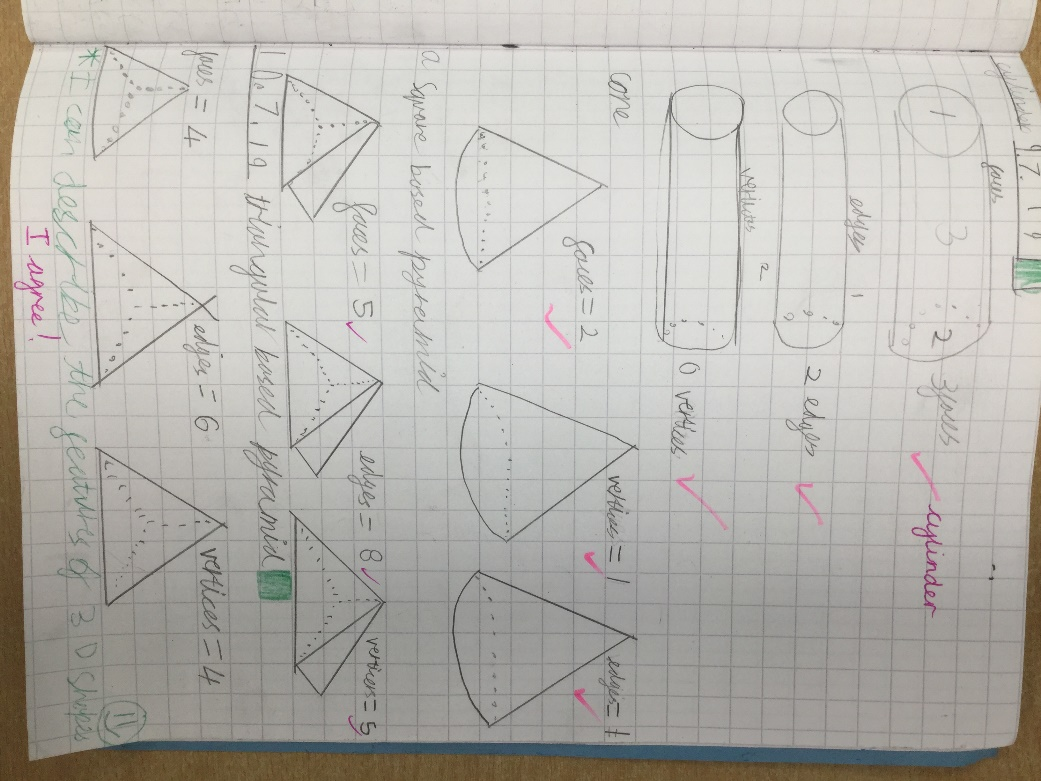 cylinder 9.7.19
faces
1 3 2 3 faces
cylinder
edges
2 edges
vertices
0 vertices
cone
faces = 2
vertices = 1
edges = 1
a square based pyramid
faces = 5
edges = 8
vertices = 5
10.7.19 triangular based pyramid
faces = 4
edges = 6
vertices = 4
*I can describe the features of 3D shapes
I agree!